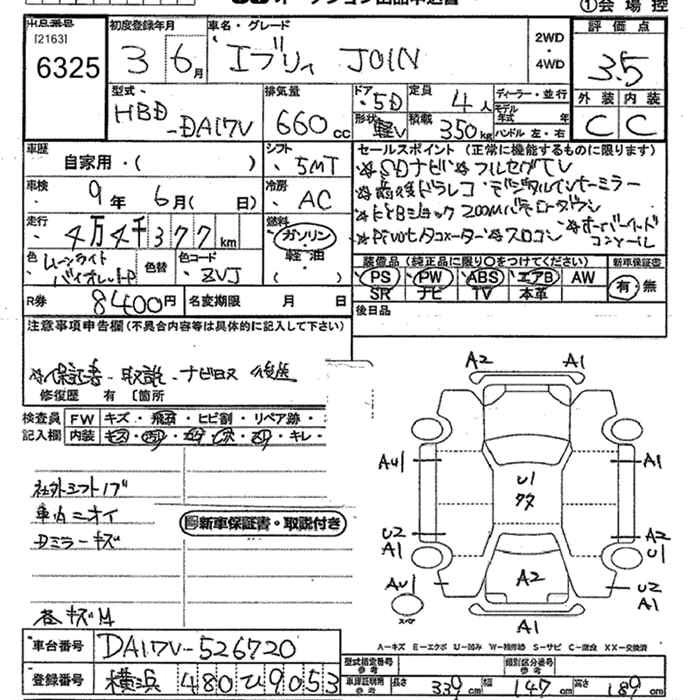 ①会 場 控
出品番号
[2163]
6325
初度登録年月
3 6月
車名・グレード
エブリィ JOIN
2WD
・
4WD
評 価 点
3.5
型式・
HBD
-DA17V
排気量
660 cc
ドア・
5D
定員
4人
ディーラー・並行
形状
軽V
積載
350kg
モデル
年式 年
ハンドル 左・右
外 装 内 装
C C
車歴
自家用・( )
シフト
・5MT
セールスポイント (正常に機能するものに限ります)
☆SDナビ ☆フルセグTV
☆前後ドラレコ ・デジタルインナーミラー
☆Pivotタコメーター ☆スロコン ☆オーバーヘッドコンソール
車検
9年 6月( 日)
冷房
・AC
走行
4万4千377km
燃料
ガソリン・
軽 油
・( )
色
ムーンライト
バイオレットP
色替
色コード
ZVJ
装備品 (純正品に限り○をつけてください)
PS PW ABS エアB AW
SR ナビ TV 本革
新車保証書
有・無
R券 8400円
名変期限 月 日
後日品
注意事項申告欄(不具合内容等は具体的に記入して下さい)
☆保証書・取説・ナビ取説 後送
修復歴 有 〔箇所
検査員 FW キズ・飛石・ヒビ割・リペア跡・
記入欄 内装 ・キレ・
社外シフトノブ
車内ニオイ
Dミラーキズ
新車保証書・取説付き
A2 A1
AU1 A1
U1
U2 A2
A1 U1
AU1 A2 U2
A1
A1
A-キズ E-エクボ U-凹み W-補修跡 S-サビ C-腐食 XX-交換済
車台番号 DA17V-526720
登録番号 横浜 480 ひ 9053
型式指定番号
参考
類別区分番号
参考
車庫証明用
参考
長さ 339cm 幅 147cm 高さ 189cm